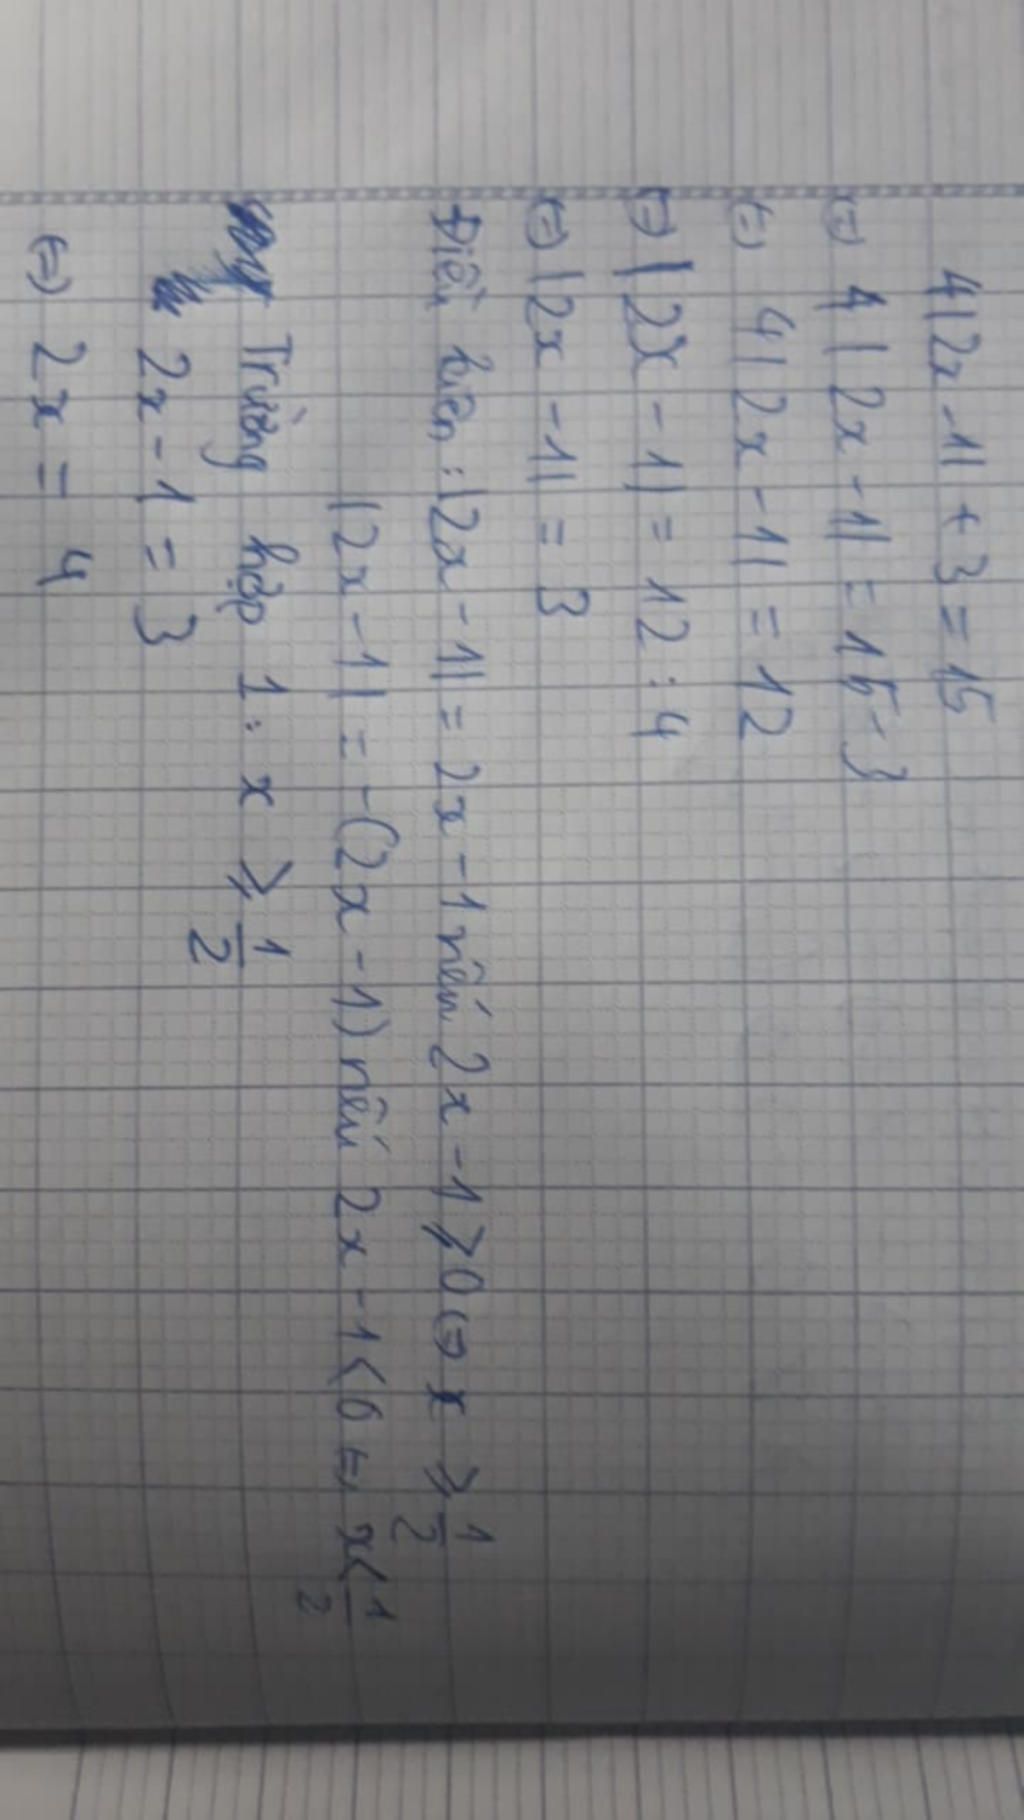 4|2x-1|+3=15
⇔ 4|2x-1|=15-3
⇔ 4|2x-1|=12
⇔ |2x-1|=12:4
⇔ |2x-1|=3
Điều kiện: |2x-1|=2x-1 nếu 2x-1⩾0 ⇔ x ⩾ 1/2
|2x-1|=-(2x-1) nếu 2x-1<0 ⇔ x< 1/2
Trường hợp 1: x ⩾ 1/2
2x-1=3
⇔ 2x = 4